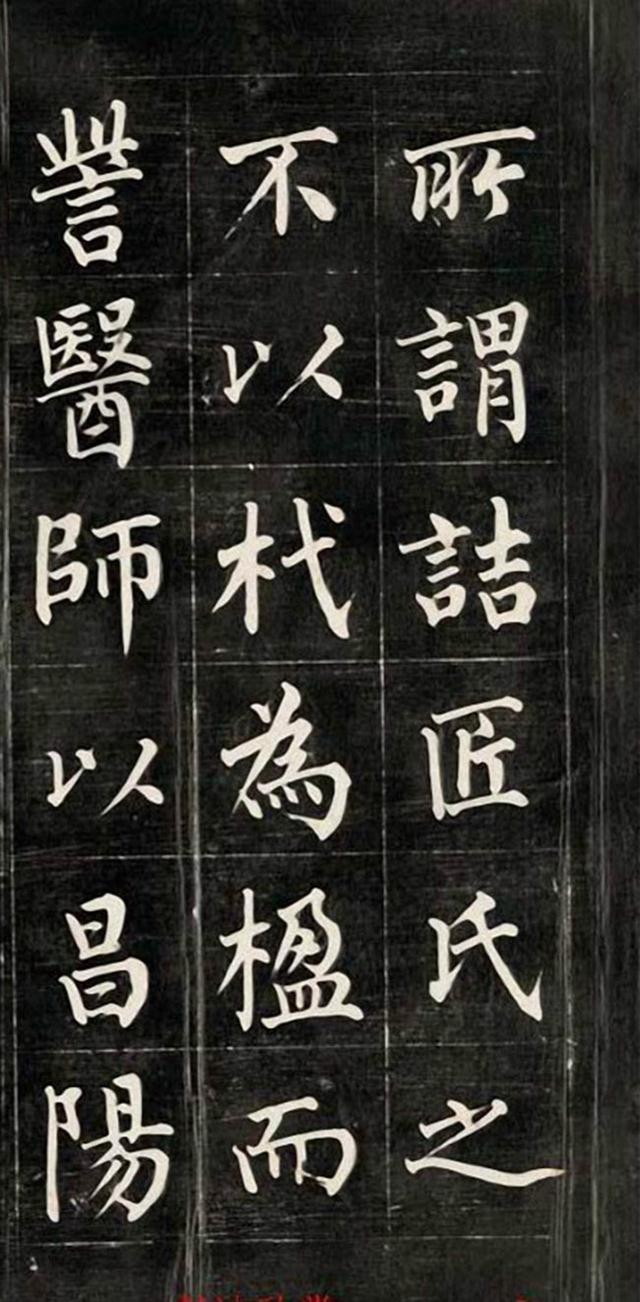 所謂詰匠氏之
不以杙為楹而
訾醫師以昌陽